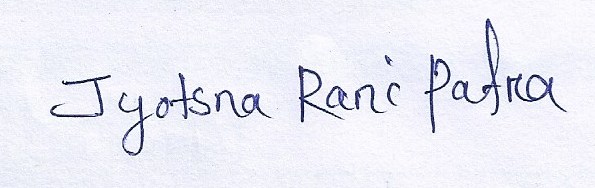 Jyotsna Rani Patra